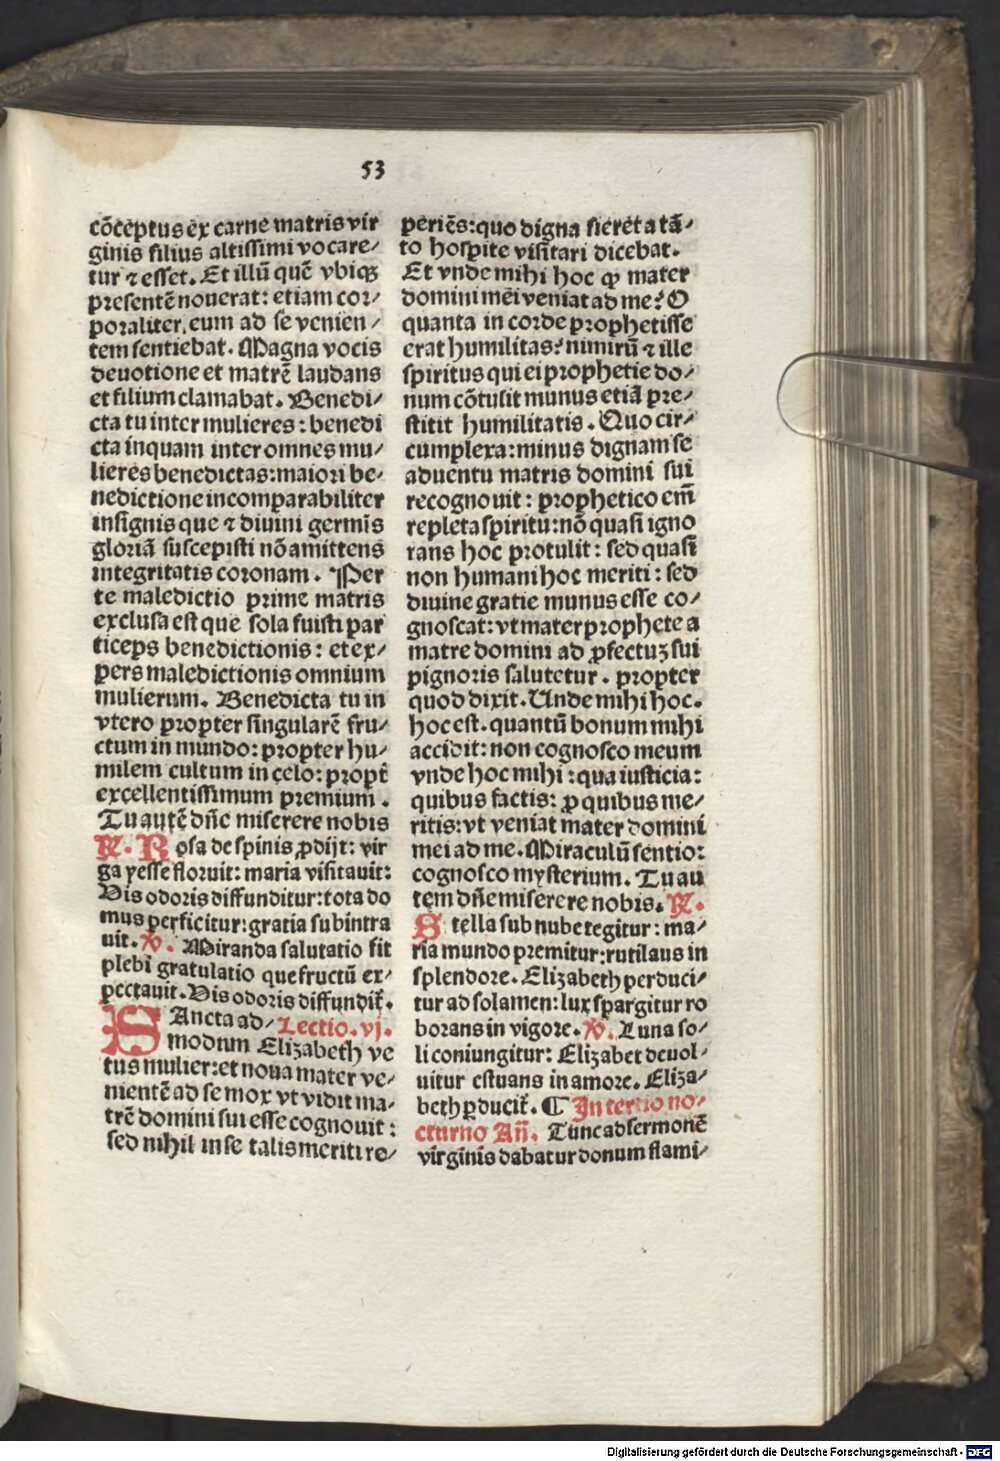 53
cōceptus ex carne matris vir
ginis filius altissimi vocare⸗
tur ⁊ esset. Et illū quē vbiqꝫ
presentē nouerat: etiam cor⸗
poraliter, eum ad se venien⸗
tem sentiebat. Magna vocis
deuotione et matrē laudans
et filium clamabat. Benedi⸗
cta tu inter mulieres: benedi
cta inquam inter omnes mu⸗
lieres benedictas: maiori be⸗
nedictione incomparabiliter
insignis que ⁊ diuini germīs
gloriā suscepisti nō amittens
integritatis coronam. Per
te maledictio prime matris
exclusa est que sola fuisti par
ticeps benedictionis: et ex⸗
pers maledictionis omnium
mulierum. Benedicta tu in
vtero propter singularē fru⸗
ctum in mundo: propter hu⸗
milem cultum in celo: propt̄
excellentissimum premium.
Tu autē dn̄c miserere nobis
℟. Rosa de spinis ꝓdijt: vir
ga yesse floruit: maria visitauit:
Vis odoris diffunditur: tota do
mus perficitur: gratia subintra
uit. ℣. Miranda salutatio fit
plebi gratulatio que fructū ex⸗
pectauit. Vis odoris diffundit̄.
SAncta ad⸗ Lectio. vj.
modum Elizabeth ve
tus mulier: et noua mater ve⸗
nientē ad se mox vt vidit ma⸗
trē domini sui esse cognouit:
sed nihil in se talis meriti re⸗
periēs: quo digna fieret a tā⸗
to hospite visitari dicebat.
Et vnde mihi hoc ꝙ mater
domini mei veniat ad me? O
quanta in corde prophetisse
erat humilitas? nimirū ⁊ ille
spiritus qui ei prophetie do⸗
num cōtulit munus etiā pre⸗
stitit humilitatis. Quo cir⸗
cumplexa: minus dignam se
aduentu matris domini sui
recognouit: prophetico em̄
repleta spiritu: nō quasi igno
rans hoc protulit: sed quasi
non humani hoc meriti: sed
diuine gratie munus esse co⸗
gnoscat: vt mater prophete a
matre domini ad ꝓfectuꝫ sui
pignoris salutetur. propter
quod dixit. Unde mihi hoc.
hoc est. quantū bonum mihi
accidit: non cognosco meum
vnde hoc mihi: qua iusticia:
quibus factis: ꝓ quibus me⸗
ritis: vt veniat mater domini
mei ad me. Miraculū sentio:
cognosco mysterium. Tu au
tem dn̄e miserere nobis. ℟.
Stella sub nube tegitur: ma⸗
ria mundo premitur: rutilans in
splendore. Elizabeth perduci⸗
tur ad solamen: lux spargitur ro
borans in vigore. ℣. Luna so⸗
li coniungitur: Elizabet deuol⸗
uitur estuans in amore. Eliza⸗
beth ꝑducit̄. ¶ In tertio no⸗
cturno Añ. Tunc ad sermonē
virginis dabatur donum flami⸗
Digitalisierung gefördert durch die Deutsche Forschungsgemeinschaft - DFG